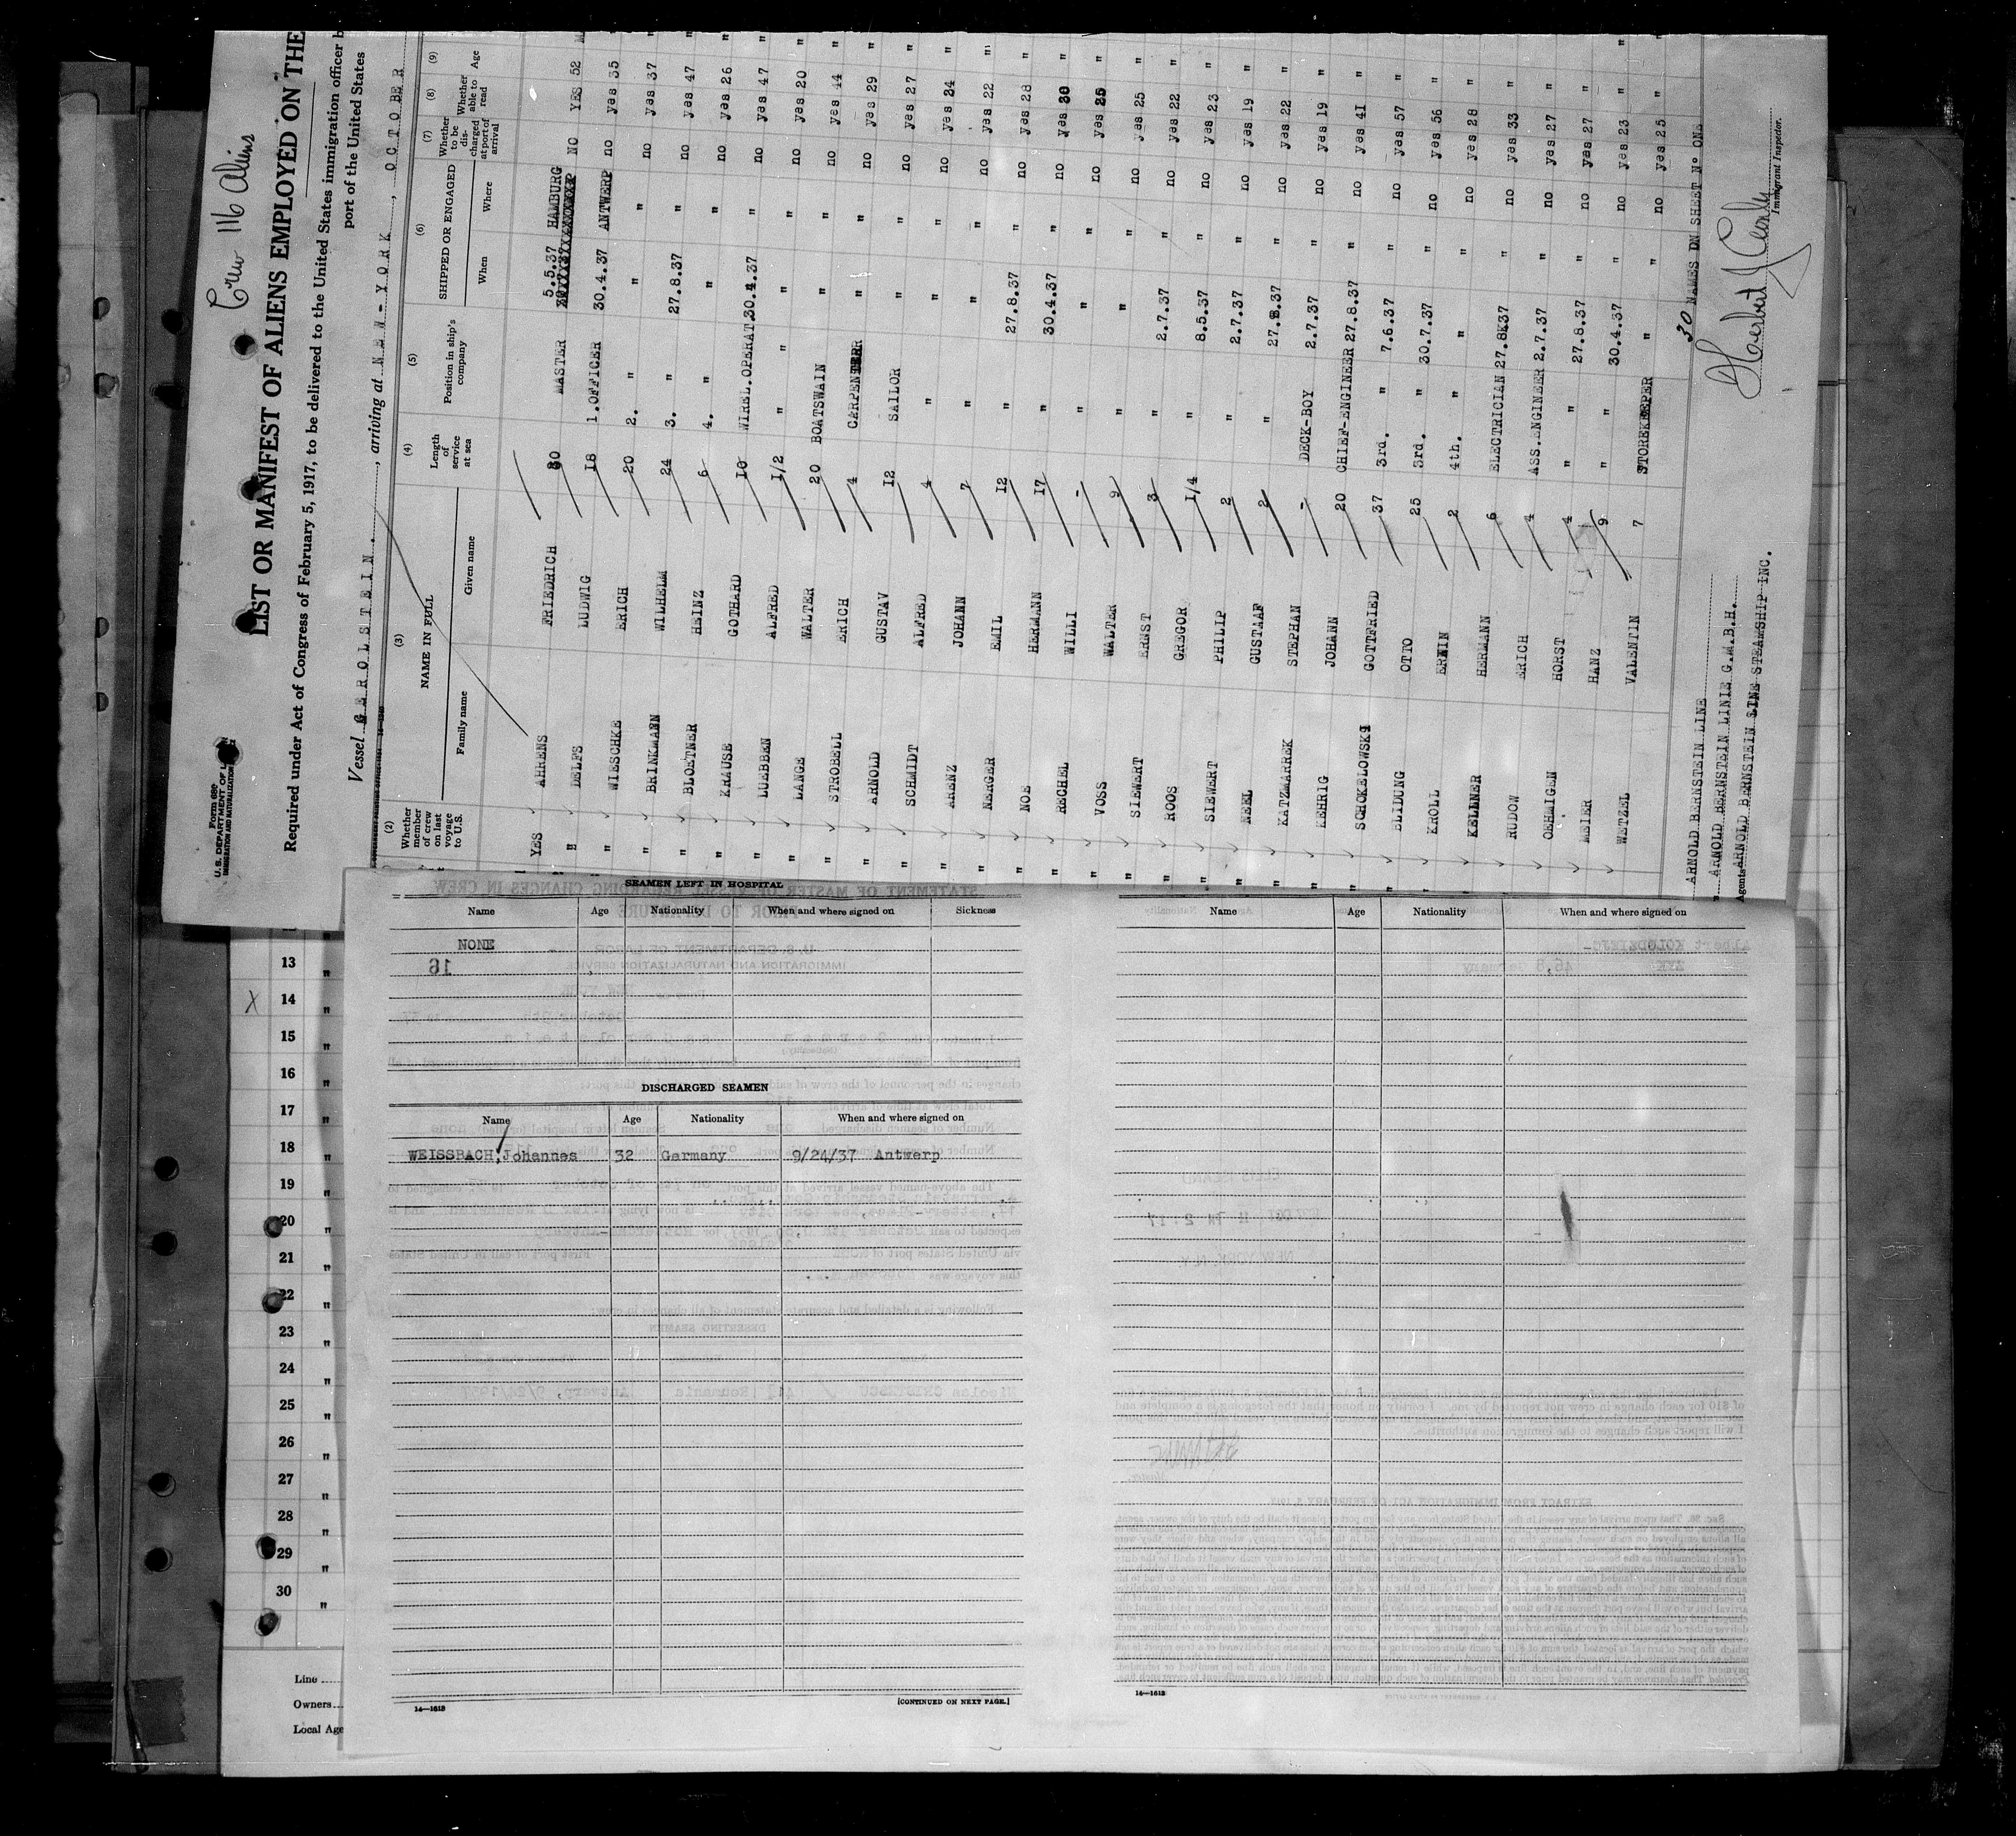 Crew 116 Aliens
Form 680
U.S. DEPARTMENT OF L
IMMIGRATION AND NATURALIZATION
LIST OR MANIFEST OF ALIENS EMPLOYED ON THE
Required under Act of Congress of February 5, 1917, to be delivered to the United States immigration officer b
port of the United States
Vessel GEROLSTEIN, arriving at NEW-YORK, OCTOBER
(2) (3) (4) (5) (6) (7) (8) (9)
Whether member of crew on last voyage to U.S. NAME IN FULL Family name Given name Length of service at sea Position in ship's company SHIPPED OR ENGAGED When Where Whether to be discharged at port of arrival Whether able to read Age
YES AHRENS FRIEDRICH 30 MASTER 5.5.37 HAMBURG NO YES 52 M
" DELFS LUDWIG 18 1.OFFICER 30.4.37 ANTWERP no yes 35 "
" WIESCHKE ERICH 20 2. " " " no yes 37 "
" BRINKMANN WILHELM 24 3. " 27.8.37 " no yes 47 "
" BLOETNER HEINZ 6 4. " " " no yes 26 "
" KRAUSE GOTHARD 10 WIREL.OPERAT. 30.4.37 " no yes 47 "
" LUEBBEN ALFRED 1/2 " " " no yes 20 "
" LANGE WALTER 20 BOATSWAIN " " no yes 44 "
" STROBELL ERICH 4 CARPENTER " " no yes 29 "
" ARNOLD GUSTAV 12 SAILOR " " no yes 27 "
" SCHMIDT ALFRED 4 " " " no yes 24 "
" ARENZ JOHANN 7 " " " no yes 22 "
" NERGER EMIL 12 " 27.8.37 " no yes 28 "
" NOE HERMANN 17 " 30.4.37 " no yes 30 "
" RECHEL WILLI - " " " no yes 25 "
" VOSS WALTER 9 " " " no yes 25 "
" SIEWERT ERNST 3 " 2.7.37 " no yes 22 "
" ROOS GREGOR 1/4 " 8.5.37 " no yes 23 "
" SIEWERT PHILIP 2 " 2.7.37 " no yes 19 "
" NEEL GUSTAAF 2 " 27.8.37 " no yes 22 "
" KATZMARREK STEPHAN - DECK-BOY 2.7.37 " no yes 19 "
" KEHRIG JOHANN 20 CHIEF-ENGINEER 27.8.37 " no yes 41 "
" SCHOKELOWSKI GOTTFRIED 37 3rd. " 7.6.37 " no yes 57 "
" BLIDUNG OTTO 25 3rd. " 30.7.37 " no yes 56 "
" KROLL ERWIN 2 4th. " " " no yes 28 "
" KELLNER HERMANN 6 ELECTRICIAN 27.8.37 " no yes 33 "
" RUDOW ERICH 4 ASS.ENGINEER 2.7.37 " no yes 27 "
" OEHMIGEN HORST 4 " 27.8.37 " no yes 27 "
" MEIER HANZ 9 " 30.4.37 " no yes 23 "
" WETZEL VALENTIN 7 STOREKEEPER " " no yes 25 "
30 NAMES ON SHEET No ONE
ARNOLD BERNSTEIN LINE
ARNOLD BERNSTEIN LINIE G.M.B.H.
Agents ARNOLD BERNSTEIN LINE STEAMSHIP INC.
Immigrant Inspector.
SEAMEN LEFT IN HOSPITAL
Name Age Nationality When and where signed on Sickness
NONE
16
DISCHARGED SEAMEN
Name Age Nationality When and where signed on
WEISSBACH, Johannes 32 Germany 9/24/37 Antwerp
14—1613
[CONTINUED ON NEXT PAGE.]
Name Age Nationality When and where signed on
14—1613
13 "
X 14 "
15 "
16 "
17 "
18 "
19 "
20 "
21 "
22 "
23 "
24 "
25 "
26 "
27 "
28 "
29 "
30 "
Line
Owners
Local Age